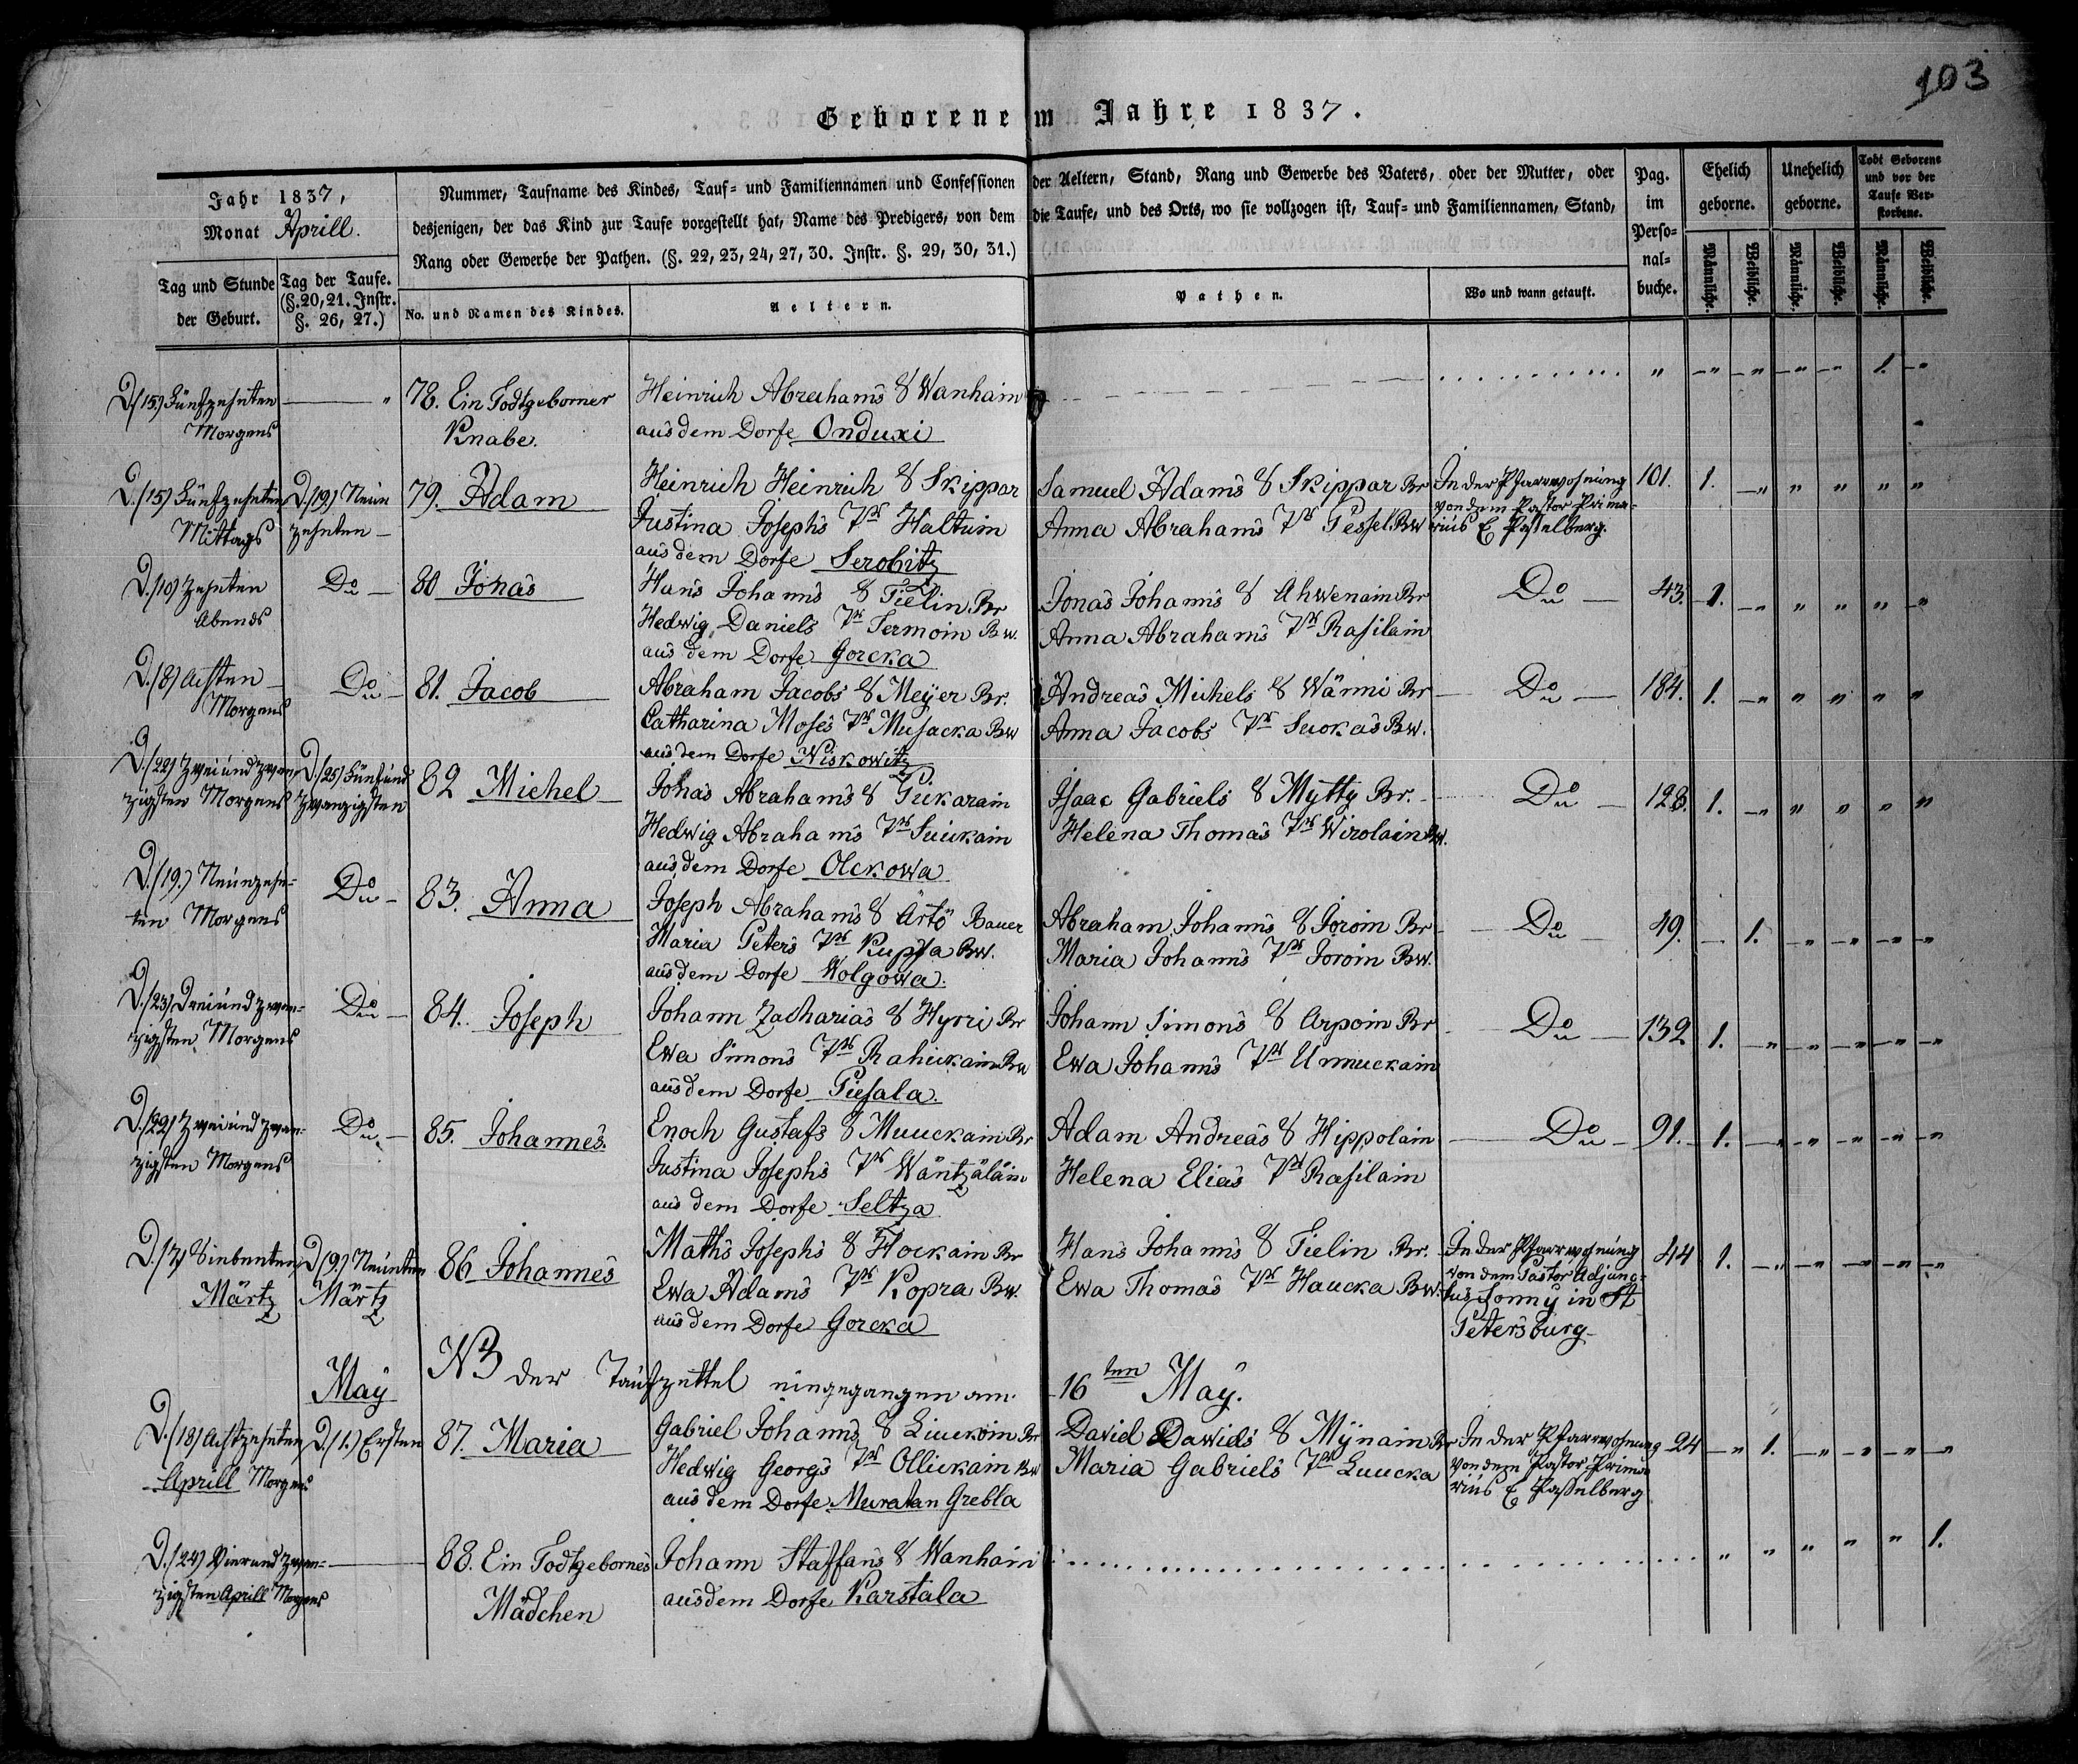 103
Geborene im Jahre 1837.
Jahr 1837,
Monat Aprill.
Tag und Stunde der Geburt.
Tag der Taufe. (§. 20, 21. Instr. §. 26, 27.)
Nummer, Taufname des Kindes, Tauf= und Familiennamen und Confessionen der Aeltern, Stand, Rang und Gewerbe des Vaters, oder der Mutter, oder
desjenigen, der das Kind zur Taufe vorgestellt hat, Name des Predigers, von dem die Taufe, und des Orts, wo sie vollzogen ist, Tauf= und Familiennamen, Stand,
Rang oder Gewerbe der Pathen. (§. 22, 23, 24, 27, 30. Instr. §. 29, 30, 31.)
No. und Namen des Kindes.
Aeltern.
Pathen.
Wo und wann getauft.
Pag. im Perso=nal=buche.
Ehelich geborne.
Unehelich geborne.
Todt Geborene und vor der Taufe Ver=storbene.
Männliche. Weibliche. Männliche. Weibliche. Männliche. Weibliche.
D. (15.) Fünfzehnten
Morgens
78. Ein Todtgeborner
Knabe.
Heinrich Abrahams S Wanhain
aus dem Dorfe Onduxi
" " " " " 1. "
D. (15) Fünfzehnten
Mittags
D. (19.) Neun
zehnten
79. Adam
Heinrich Heinrich S Skippar
Justina Josephs Tr Haltuin
aus dem Dorfe Serobitz
Samuel Adams S Skippar Br
Anna Abrahams Tr Pessel Bw
In der Pfarrwohnung
von dem Pastor Prima=
rius E Passelberg.
101. 1. " " " " "
D. (10) Zehnten
Abends
Do
80 Jonas
Hans Johanns S Tielin Br
Hedwig Daniels Tr Termoin Bw.
aus dem Dorfe Gorcka
Jonas Johanns S Ahwenain Br
Anna Abrahams Tr Rasilain
Do
43. 1. " " " " "
D. (8) Achten
Morgens
Do
81. Jacob
Abraham Jacobs S Meijer Br.
Catharina Moses Tr Musacka Bw
aus dem Dorfe Niskowitz
Andreas Michels S Wänni Br
Anna Jacobs Tr Suokas Bw.
Do
184. 1. " " " " "
D. (22) Zwei und zwan
zigsten Morgens
D. (25) Fünf und
zwanzigsten
82 Michel
Jonas Abrahams S Pickarain
Hedwig Abrahams Tr Suickain
aus dem Dorfe Olckowa
Isaac Gabriels S Mytty Br.
Helena Thomas Tr Wirolain Bw.
Do
128. 1. " " " " "
D. (19.) Neunzehn=
ten Morgens
Do
83. Anna
Joseph Abrahams S Ärtö Bauer
Maria Peters Tr Kuppa Bw.
aus dem Dorfe Wolgowa.
Abraham Johanns S Joroin Br
Maria Johanns Tr Joroin Bw.
Do
49. 1. " " " "
D. (23) Drei und zwan=
zigsten Morgens
Do
84. Joseph
Johann Zacharias S Hyrri Br
Ewa Simons Tr Rahickain Bw
aus dem Dorfe Piesala.
Johann Simons S Arpoin Br
Ewa Johanns Tr Unnuckain
Do
132 1. " " " " "
D. (22) Zwei und zwan=
zigsten Morgens
Do
85. Johannes.
Enoch Gustafs S Muuckain Br
Justina Josephs Tr Wäntzäläin
aus dem Dorfe Seltza
Adam Andreas S Hippolain
Helena Elias Tr Rasilain
Do
91. 1. " " " " "
D. (7) Siebenten
Märtz
D. (9.) Neunten
Märtz
86 Johannes
Maths Josephs S Hockain Br
Ewa Adams Tr Kopra Bw.
aus dem Dorfe Gorcka
Hans Johanns S Tielin Br.
Ewa Thomas Tr Haucka Bw.
In der Pfarrwohnung
von dem Pastor Adjunc=
tus Jonny in St
Petersburg
44 1. " " " " "
NB der Taufzettel eingegangen am 16ten May.
May
D. (18) Achtzehnten
Aprill Morgens
D. (1.) Ersten
87. Maria
Gabriel Johanns S Liuckoin Br
Hedwig Georgs Tr Ollickain Bw
aus dem Dorfe Muratan Grebla
David Davids S Mÿnain Br
Maria Gabriels Tr Luucka
In der Pfarrwohnung
von dem Pastor Prima
rius E Passelberg
24 " 1. " " " "
D. (24) Vier und zwan=
zigsten Aprill Morgens
88. Ein Todtgebornes
Mädchen
Johann Staffans S Wanhain
aus dem Dorfe Karstala
" " " " " 1.